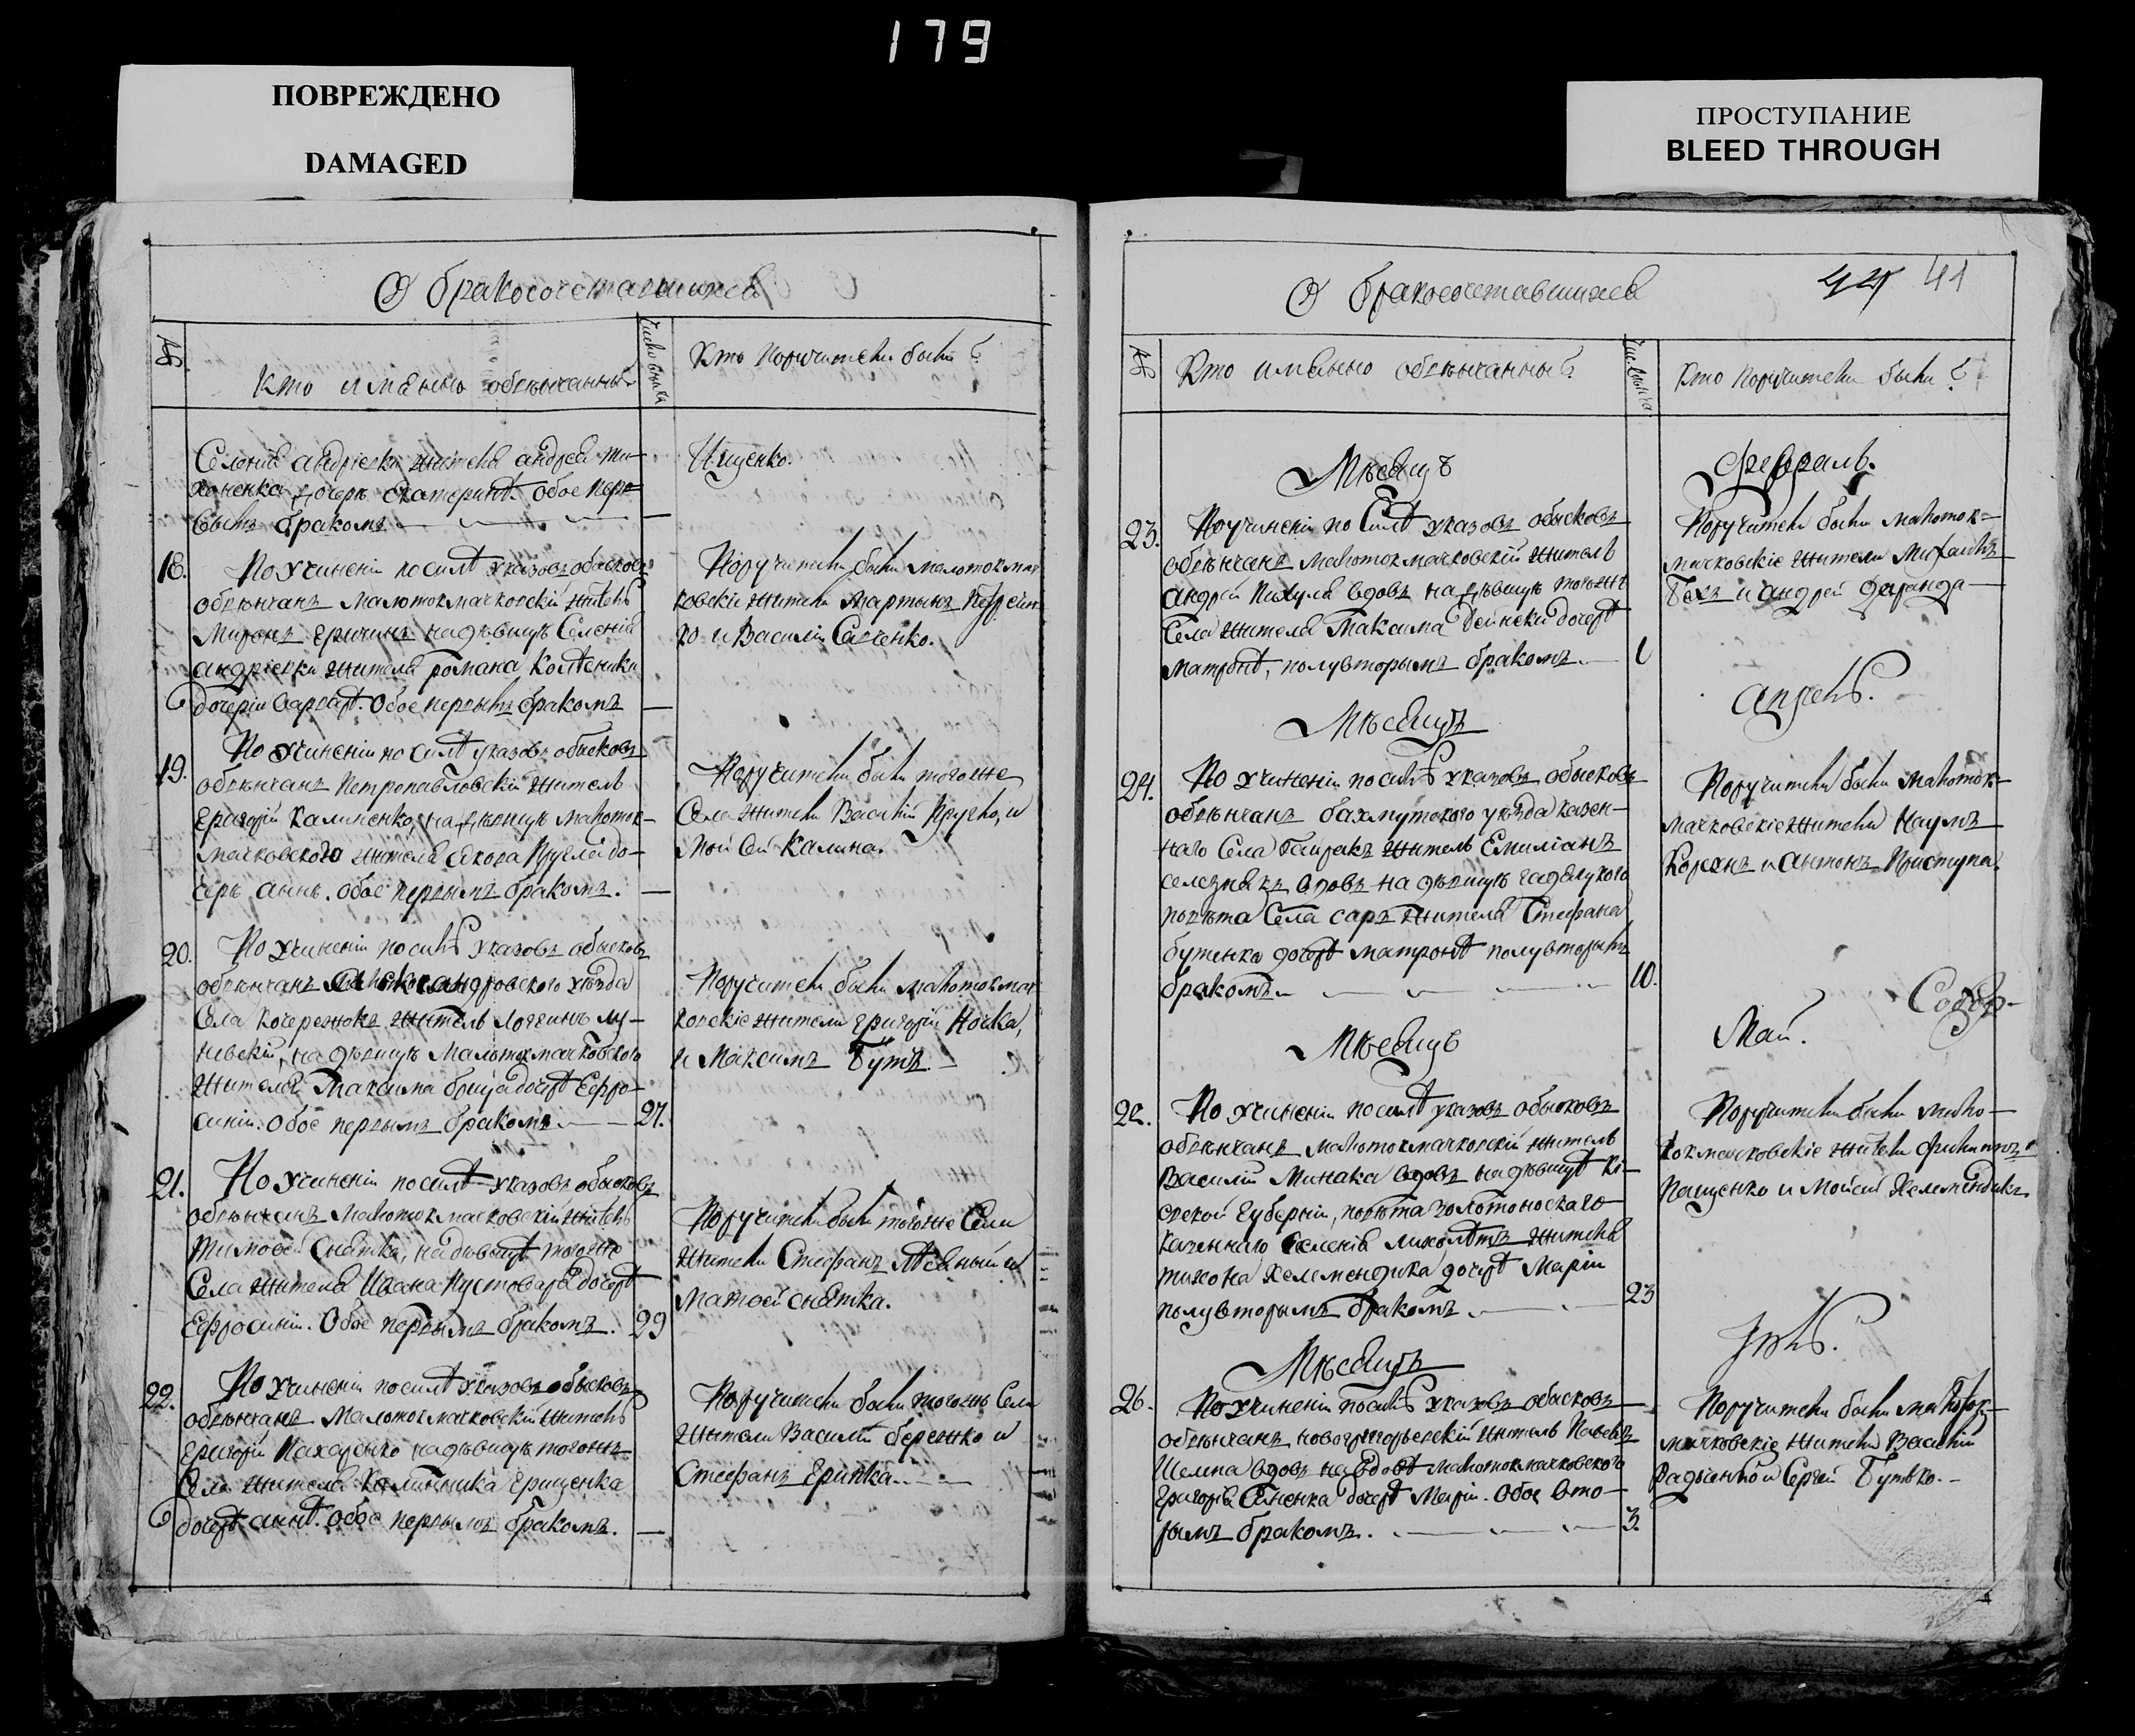 179
ПОВРЕЖДЕНО
DAMAGED
ПРОСТУПАНИЕ
BLEED THROUGH
О бракосочетавшихся
№
Кто имянно обвѣнчанны?
Числовника
Кто Поручители были?
Селенія андріевки жителя андрея ти-
хоненка дочерь Екатерине. обое пер-
вымъ бракомъ
Ищенко.
18.
По учиненіи по силѣ указовъ обысковъ
обвѣнчанъ малотокмачковскій житель
Миронъ на дѣвицѣ Селенія
андріевки жителя романа Колѣсника
дочеріи варварѣ. Обое первымъ бракомъ
Поручители были малотокмач-
ковскіе жители Мартынъ
и Василій Савченко.
19.
По учиненіи по силѣ указовъ обысковъ
обвѣнчанъ Петропавловскій житель
Григорій Калиненко, на дѣвицѣ малоток-
мачковскаго жителя якова до-
черь аннѣ. обое первымъ бракомъ.
Поручители были тогоже
Села жители Василій и
Мойсей Калина.
20.
По учиненіи по силѣ указовъ обысковъ
обвѣнчанъ александровского уѣзда
Села Кочережокъ житель Логгинъ
на дѣвицѣ Малотокмачковского
жителя Максима дочерѣ Ефро-
синіи. Обое первымъ бракомъ
27.
Поручители были малотокмач-
ковскіе жители Григорій Носка,
и Максимъ Бутъ.
21.
По учиненіи по силѣ указовъ обысковъ
обвѣнчанъ малотокмачковскій житель
Тимофей Снятка, на дѣвицѣ тогоже
Села жителя Ивана Пустовара дочерѣ
Ефросиніи. Обое первымъ бракомъ.
29
Поручители были тогоже Села
жители Стефанъ и
Матвей Снятка.
22.
По учиненіи по силѣ указовъ обысковъ
обвѣнчанъ Малотокмачковскій житель
Григорій Пахаренко на дѣвицѣ тогожъ
Села жителя Грищенка
дочерѣ аннѣ. обое первымъ бракомъ.
Поручители были тогожъ Села
жители Василій бережко и
Стефанъ Гритка
О бракосочетавшихся
41
№
Кто имянно обвѣнчанны?
Числовника
Кто Поручители были?
Мѣсяцъ
Февраль.
23.
По учиненіи по Силѣ указовъ обысковъ
обвѣнчанъ малотокмачковскій житель
андрей вдовъ на дѣвицѣ тогожъ
Села жителя Максима Дейнеки дочерѣ
матронѣ, полувторымъ бракомъ
Поручители были малоток-
мачковскіе жители Михаилъ
и андрей
Мѣсяцъ
апрель.
24.
По учиненіи по силѣ указовъ обысковъ
обвѣнчанъ бахмутского уѣзда казен-
наго Села жителъ Емиліанъ
селезнякъ вдовъ на дѣвицѣ гадяцкого
повѣта Села саръ жителя Стефана
бутенка дочерѣ матронѣ полувторымъ
бракомъ
10.
Поручители были малоток-
мачковскіе жители Наумъ
и антонъ Приступа.
Мѣсяцъ
Май.
По учиненіи по силѣ указовъ обысковъ
обвѣнчанъ малотокмачковскій житель
Василій Минака вдовъ на дѣвицѣ Кі-
евской Губерніи, повѣта золотоноскаго
казеннаго селенія жителя
тихона Келемендика дочерѣ Маріи
полувторымъ бракомъ
23
Поручители были мало-
токмачковскіе жители Филиппъ
Пащенко и Мойсей Келемендикъ
Мѣсяцъ
Іюль.
26.
По учиненіи по силѣ указовъ обысковъ
обвѣнчанъ новогригорьевскій житель Павелъ
Шелпа вдовъ на вдовѣ малотокмачковского
Григорія дочерѣ Маріи. Обое вто-
рымъ бракомъ.
3.
Поручители были малоток-
мачковскіе жители Василій
и Сергей Бутько.